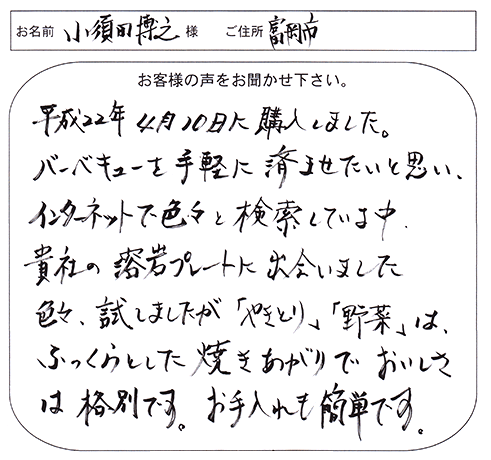 お名前 小須田博之 様 ご住所 富岡市
お客様の声をお聞かせ下さい。
平成22年 4月20日に購入しました。
バーベキューを手軽に済ませたいと思い、
インターネットで色々と検索しています中、
貴社の溶岩プレートに出会いました
色々、試しましたが「やきとり」、「野菜」は、
ふっくらとした焼きあがりでおいしさ
は格別です。お手入れも簡単です。